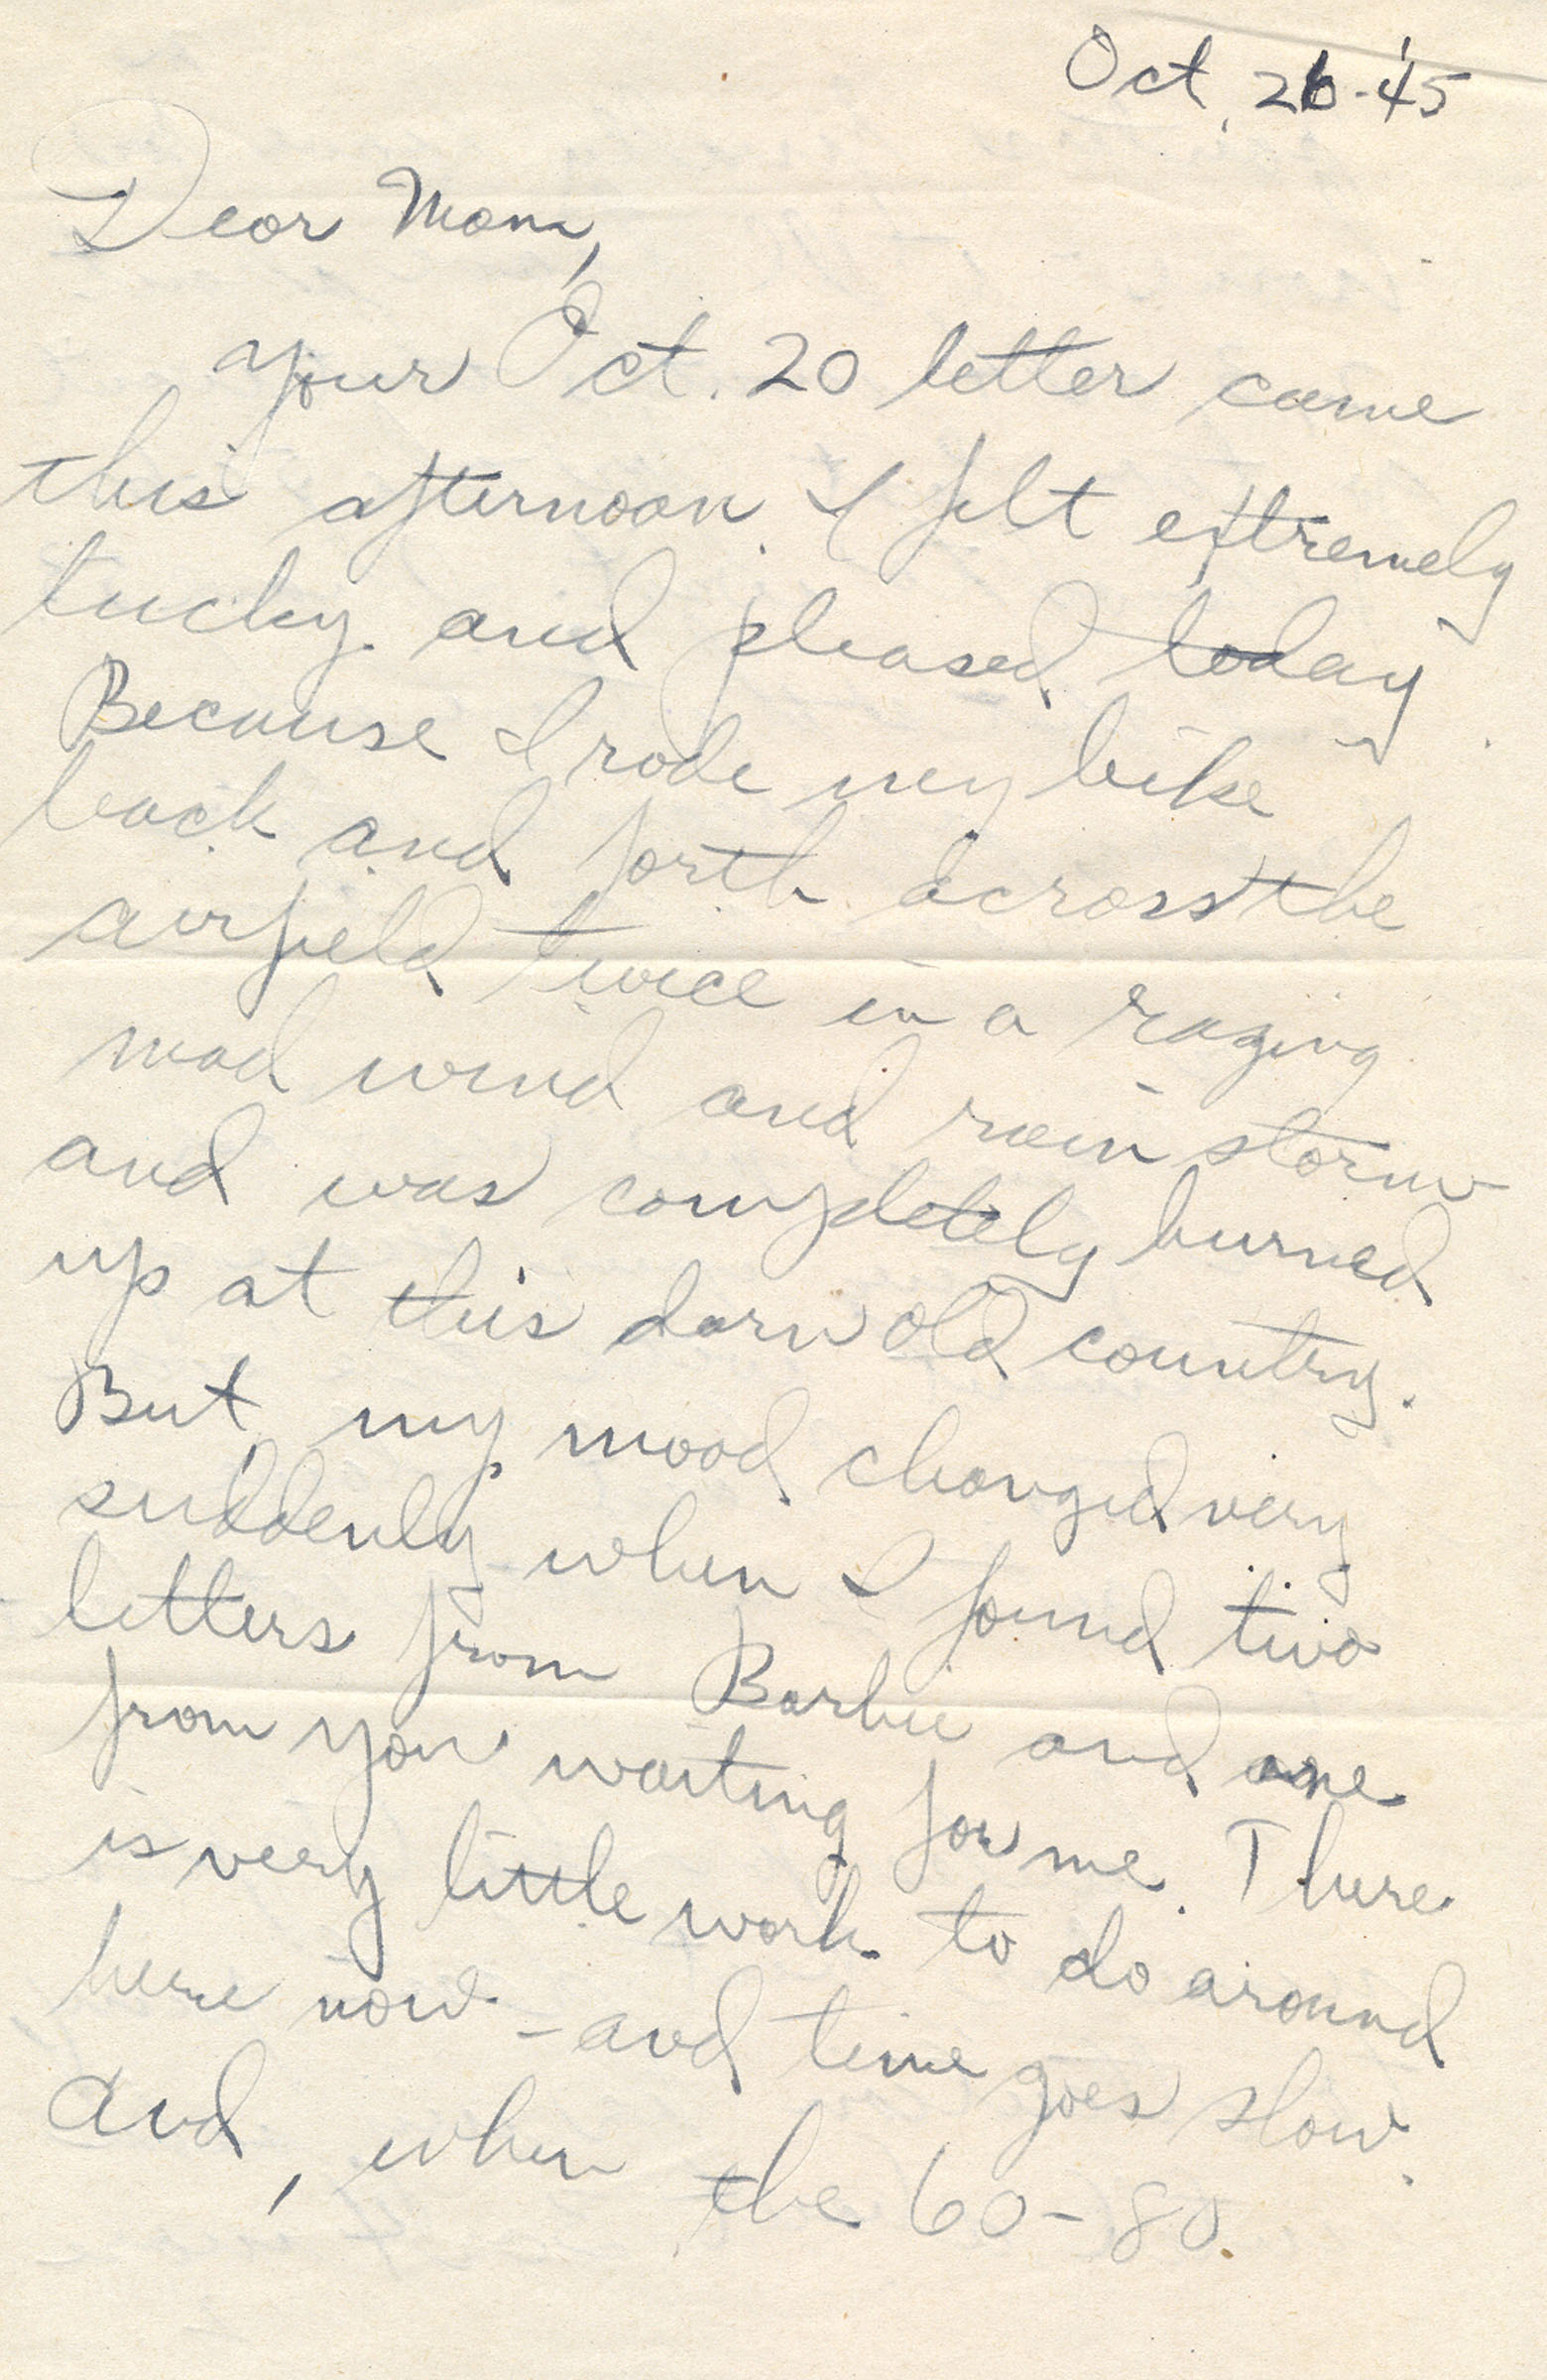 Oct. 26-'45
Dear Mom,
your Oct. 20 letter came
this afternoon. I felt extremely
lucky and pleased today
Because I rode my bike
back and forth across the
airfield twice in a raging
mad wind and rain storm
and was completely burned
up at this darn old country.
But, my mood changed very
suddenly when I found two
letters from Barbie and one
from you waiting for me. There
is very little work to do around
here now - and time goes slow.
And, when the 60-80